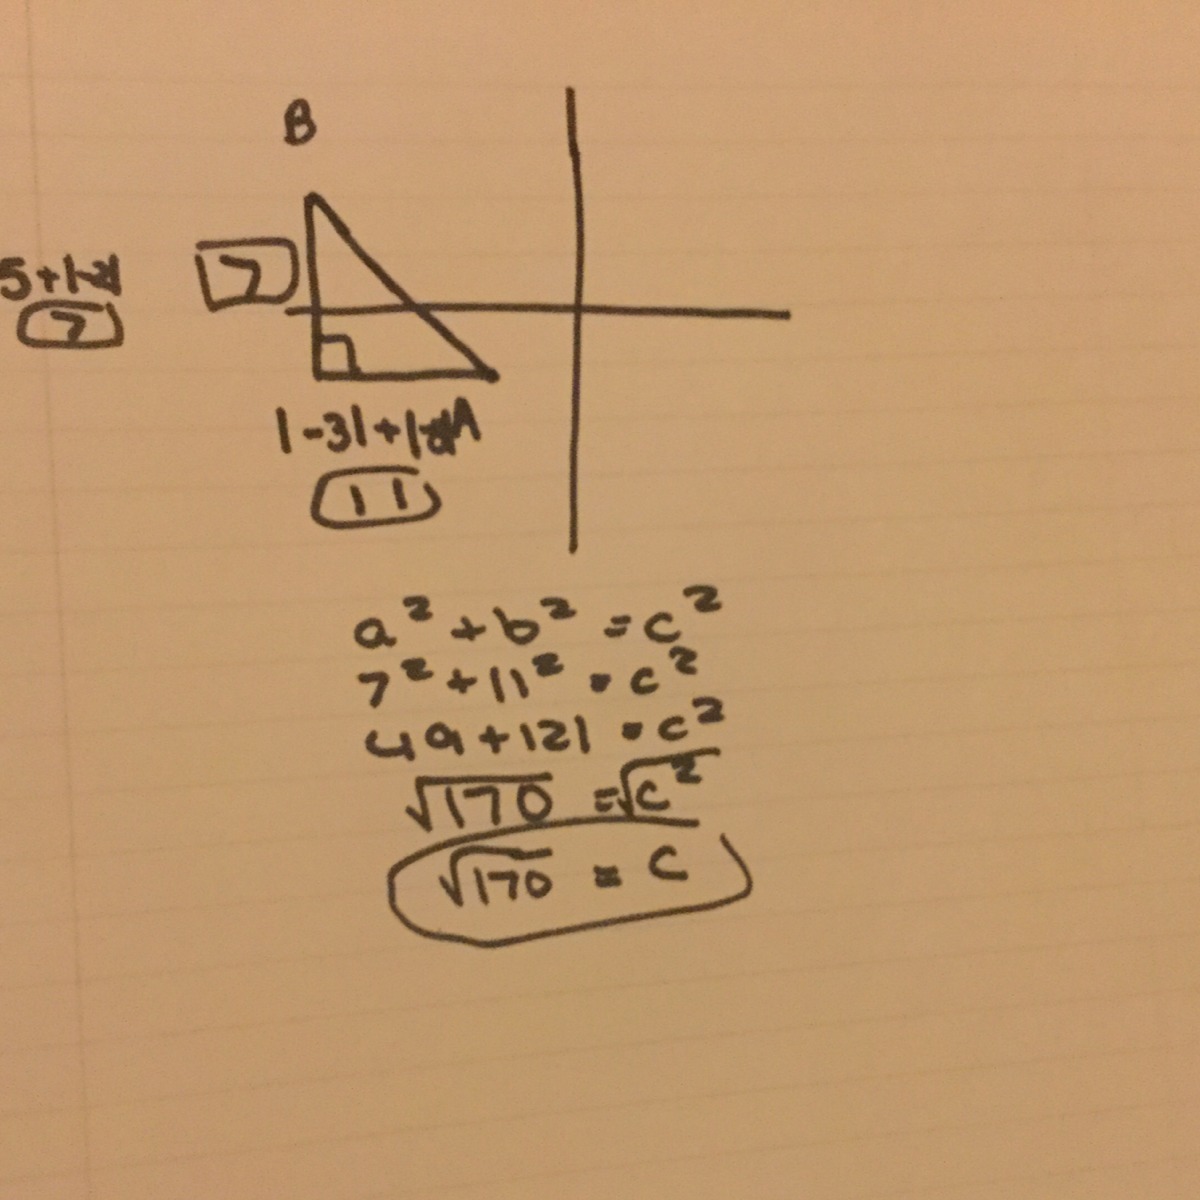 B
5+|-2|
7
7
|-3|+|-8|
A
11
a²+b²=c²
7²+11²=c²
49+121=c²
√170=√c²
√170=c